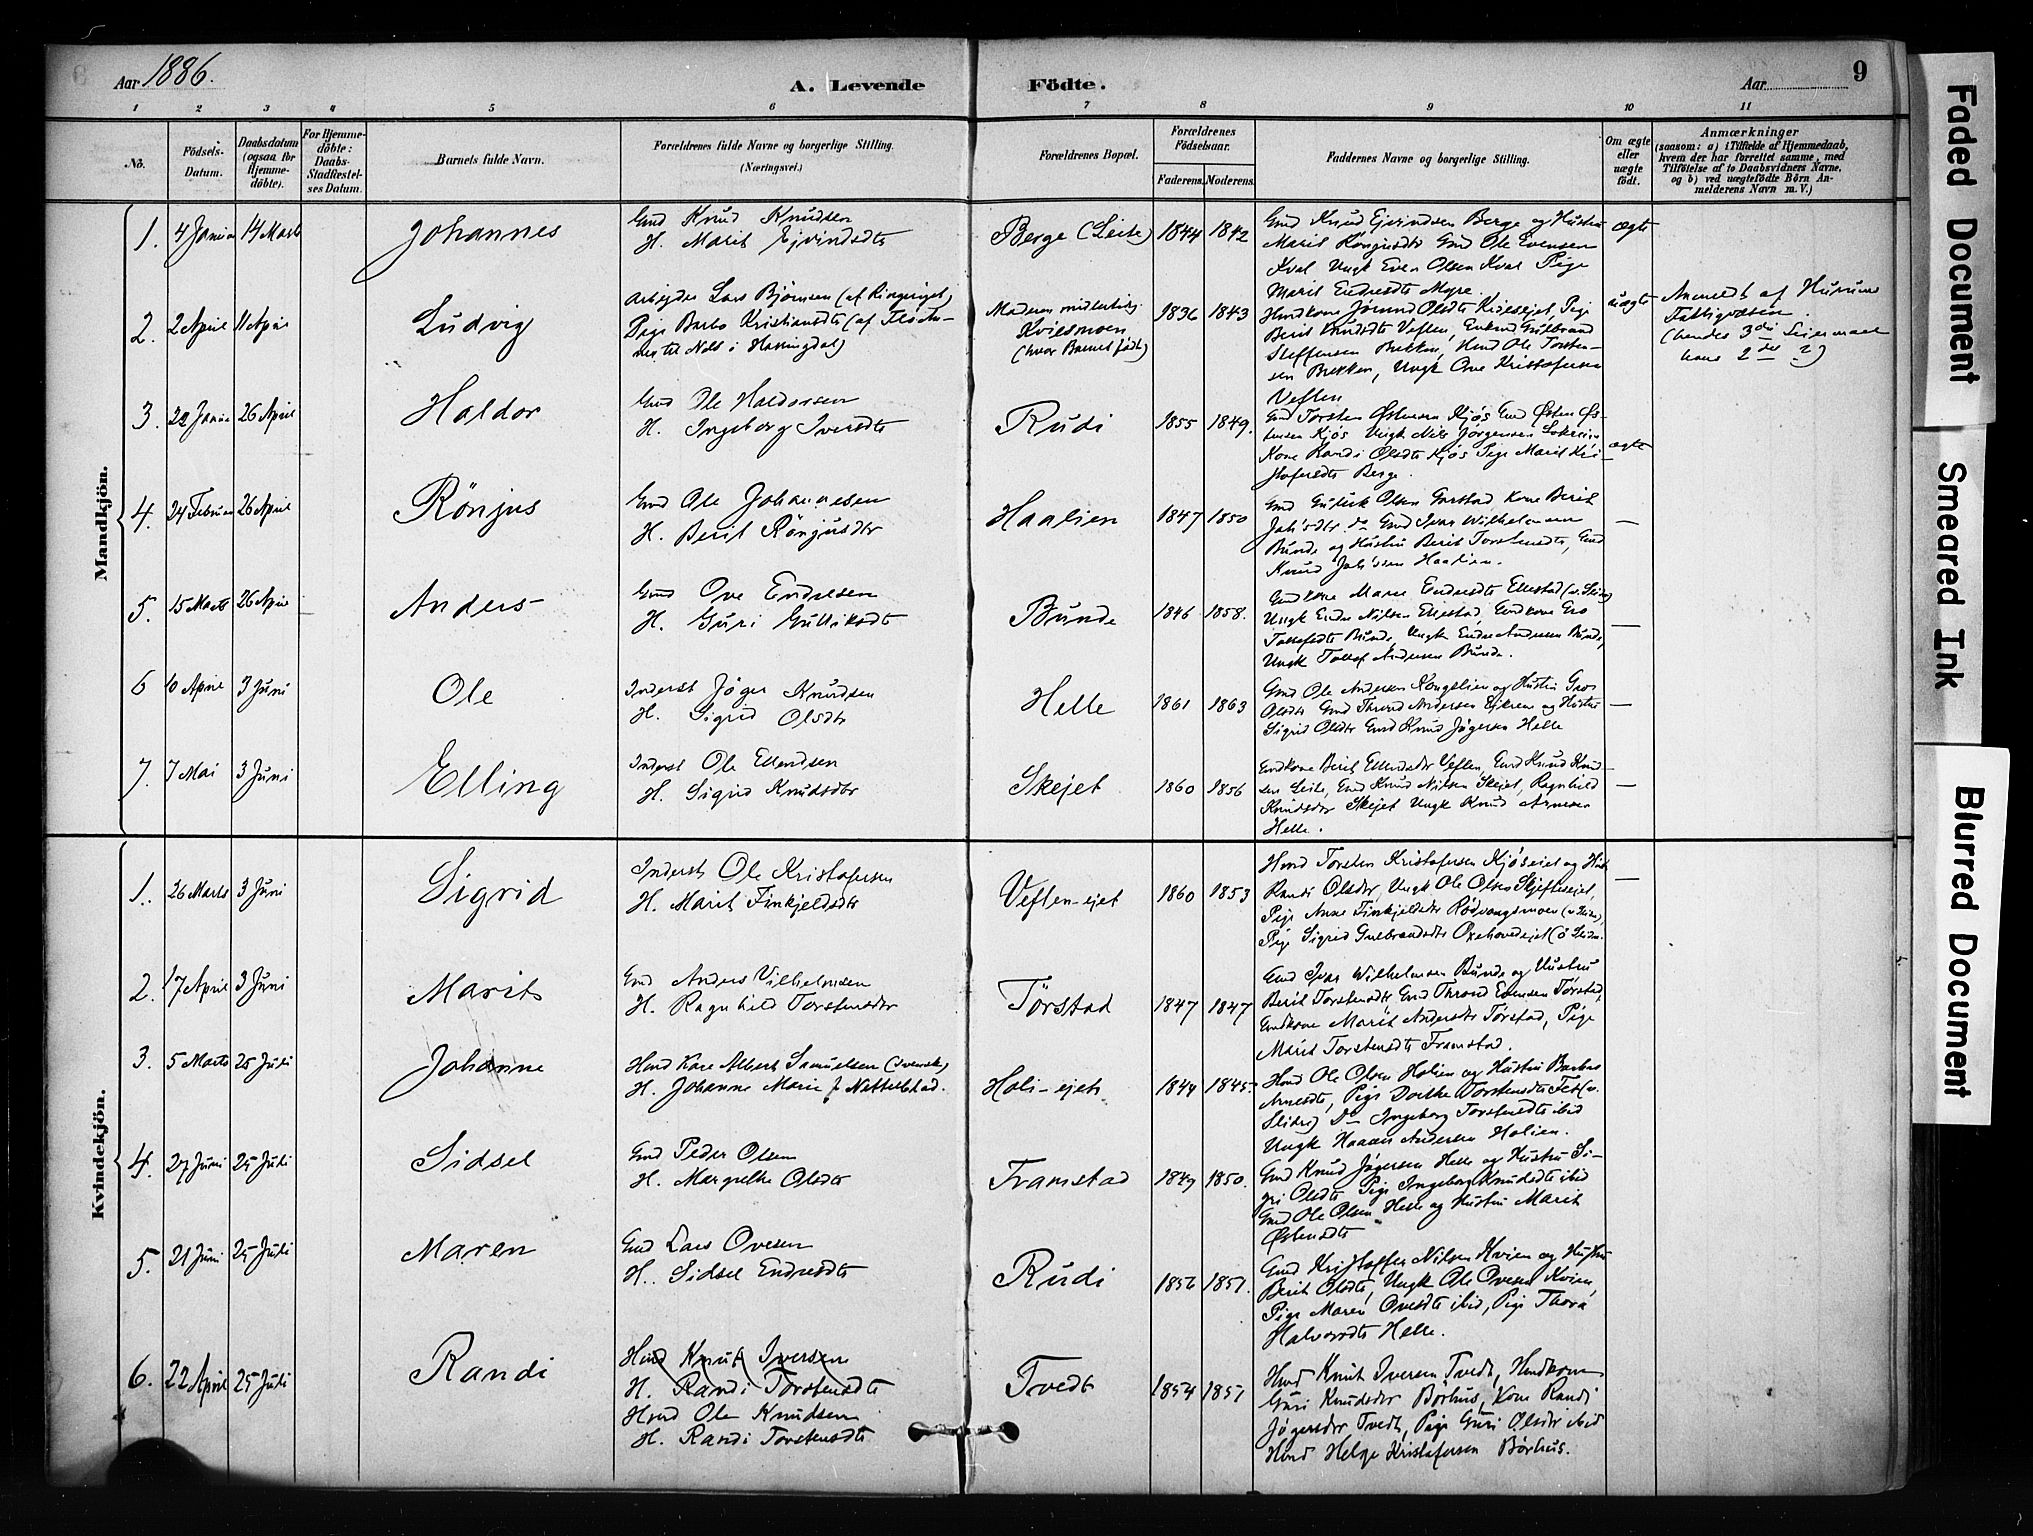 Aar 1886.
A. Levende Födte.
Aar
9
1 2 3 4 5 6 7 8 9 10 11
No.
Födsels-Datum.
Daabsdatum (ogsaa for Hjemmedöbte).
For Hjemmedöbte: Daabs-Stadfestelses Datum.
Barnets fulde Navn.
Forældrenes fulde Navne og borgerlige Stilling.
(Næringsvei.)
Forældrenes Bopæl.
Forældrenes Födselsaar.
Faderens. Moderens.
Faddernes Navne og borgerlige Stilling.
Om ægte eller uægte födt.
Anmærkninger
(saasom: a) i Tilfælde af Hjemmedaab, hvem der har forrettet samme, med Tilföielse af to Daabsvidners Navne, og b) ved uægtefödte Börn Anmelderens Navn m. V.)
Mandkjön.
1. 4 Januar 14 Marts Johannes
Gmd Knud Knudsen
H. Marit Ejvindsdtr
Berge (Leite) 1844 1842
Gmd Knud Ejvindsen Berge og Hustru
Marit Rönjusdtr Gmd Ole Evensen
Kval Ungk Even Olsen Kval Pige
Marit Endresdtr Myre.
ægte
2. 2 April 11 April Ludvig
Arbejder Lars Bjørnsen (af Ringeriget)
Pige Barbo Kristiansdtr
i Hallingdal)
Moderen midlertidig
Kvismoen
(hvor Barnet født)
1836 1843
Pige
Berit Knudsdtr Veflen, Enkmd Gulbrand
Steffensen Brekken, Hmd Ole Torsten-
sen Brekken, Ungk Ove Kristofersen
Veflen
uægte
Anmeldt af Hurums
Fattigvæsen.
(hendes 3die Leiermaal
hans 2det ?)
3. 22 Januar 26 April Haldor
Gmd Ole Haldorsen
H. Ingeborg Iversdtr
Rudi 1855 1849.
Gmd Torsten Østensen Kjös Gmd Østen Øs-
tensen Kjös Ungk Nils Jørgensen
Kone Randi Olsdtr Kjös Pige Marit Kri-
stofersdtr Berge.
ægte
4. 24 Februar 26 April Rönjus
Gmd Ole Johannesen
H. Berit Rönjusdtr
Haalien 1847 1850
Gmd Gullik Olsen Garstad Kone Berit
Joh'sdtr do Gmd Ivar Wilhelmsen
Bunde og Hustru Berit Torstensdtr, Gmd
Knud Joh'sen Haalien.
—
5. 15 Marts 26 April Anders
Gmd Ove Endresen
H. Guri Gulliksdtr
Bunde 1846 1858.
Gmdkone Marie Endresdtr Ellestad (v. Slidre)
Ungk Endre Nilsen Ellestad, Gmdkone Gro
Tollefsdtr Bunde, Ungk Endre Andersen Bunde,
Ungk Tollef Andersen Bunde.
—
6 10 April 3 Juni Ole
Inderst Jøger Knudsen
H. Sigrid Olsdtr
Helle 1861 1863
Gmd Ole Andersen Kongslien og Hustru Gro
Olsdtr Gmd Thrond Andersen og Hustru
Sigrid Olsdtr Gmd Knud Jøgersen Helle
—
7. 7 Mai 3 Juni Elling
Inderst Ole Ellendsen
H. Sigrid Knudsdtr
Skejet 1860 1856
Gmdkone Berit Ellendsdtr Veflen Gmd Knud Knud-
sen Leite, Gmd Knud Nilsen Skejet, Ragnhild
Knudsdtr Skejet Ungk Knud Arnesen
Helle.
—
Kvindekjön.
1. 26 Marts 3 Juni Sigrid
Inderst Ole Kristofersen
H. Marit Finkjeldsdtr
Veflen-ejet 1860 1853
Hmd Torsten Kristofersen Kjöseiet og Hust
Randi Olsdtr, Ungk Ole Olsen
Pige Anne Finkjeldsdtr Rödvangsmoen (v. Slidre),
Pige Sigrid Gulbrandsdtr Oxehovdejet (ö Slidre.
—
2. 17 April 3 Juni Marit
Gmd Anders Vilhelmsen
H. Ragnhild Torstensdtr
Törstad 1847 1847
Gmd Ivar Wilhelmsen Bunde og Hustru
Berit Torstensdtr, Gmd Thrond Evensen Törstad,
Gmdkone Marit Andersdtr Törstad, Pige
Marit Torstensdtr Framstad.
3. 5 Marts 25 Juli Johanne
Hmd Karl Albert Samuelsen (svensk)
H. Johanne Marie f Nettelstad.
Hali-ejet 1844 1845
Hmd Ole Olsen Halien og Hustru Barbro
Arnesdtr, Pige Dorthe Torstensdtr Fet (v.
Slidre) Do Ingeborg Torstensdtr ibid
Ungk Haaken Andersen Halien.
4. 27 Juni 25 Juli Sidsel
Gmd Peder Olsen
H. Margrethe Olsdtr
Framstad 1849 1850.
Gmd Knud Jøgersen Helle og Hustru Si-
gri Olsdtr Pige Ingeborg Knudsdtr ibid
Gmd Ole Olsen Helle og Hustru Marit
Østensdtr
5. 21 Juni 25 Juli Maren
Gmd Lars Ovesen
H. Sidsel Endresdtr
Rudi 1856 1857.
Gmd Kristoffer Nilsen Kvien og Hustru
Berit Olsdtr, Ungk Ole Ovesen Kvien,
Pige Maren Ovesdtr ibid, Pige Thora
Halvorsdtr Helle.
6. 22 April 25 Juli Randi
Hmd Knut Iversen
H. Randi Torstensdtr
Hmd Ole Knudsen
H. Randi Torstensdtr
Tvedt 1854 1851
Hmd Knut Iversen Tvedt, Hmdkone
Guri Knudsdtr Börhus, Kone Randi
Jøgersdtr Tvedt, Pige Guri Olsdtr ibid
Hmd Helge Kristofersen Börhus.
Faded Document
Smeared Ink
Blurred Document